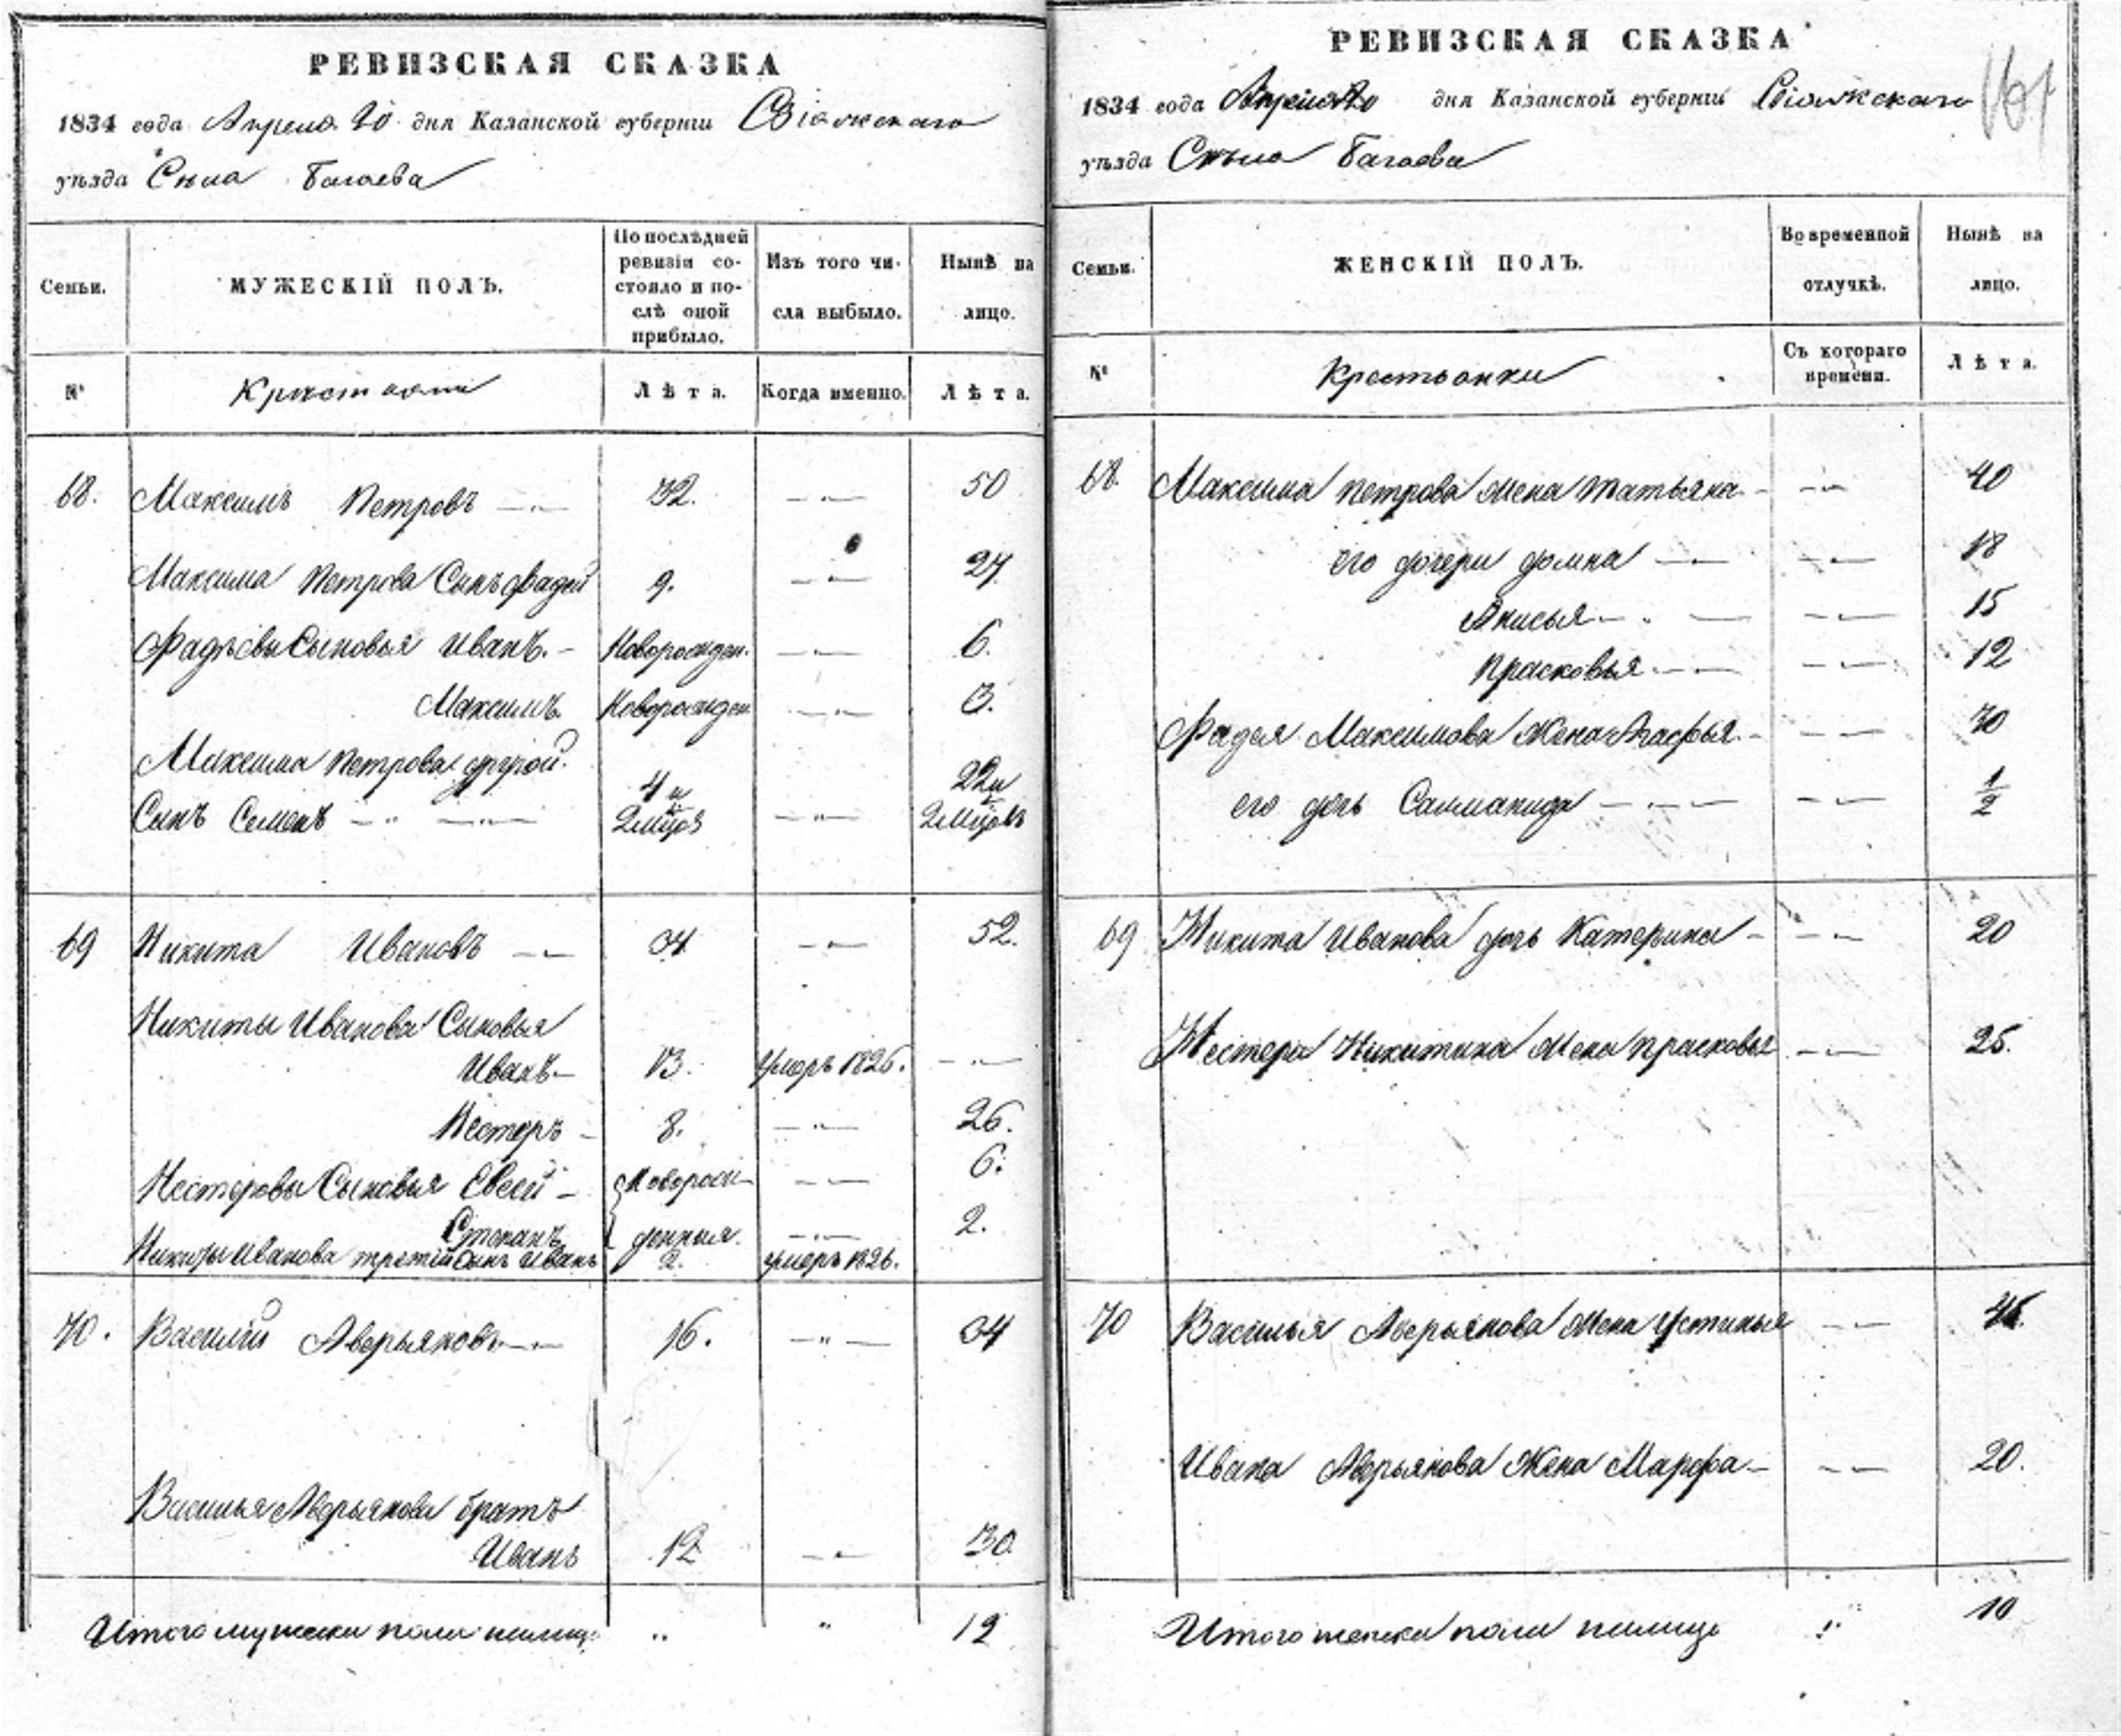 РЕВИЗСКАЯ СКАЗКА
1834 года Апреля 20 дня Казанской губернiи Свiяжскаго
уѣзда Села Багаева
Семьи.
МУЖЕСКІЙ ПОЛЪ.
По послѣдней ревизіи состояло и послѣ оной прибыло.
Изъ того числа выбыло.
Нынѣ на лицо.
№
Крестьяни
Лѣта.
Когда именно.
Лѣта.
68. Максимъ Петровъ 32. 50
Максима Петрова Сынъ Фадей 9. 27
Фадѣевы Сыновья Иванъ. Новорожден. 6.
Максимъ. Новорожден. 3.
Максима Петрова другой
Сынъ Семенъ 4 и 2 мѣсц 22 и 2 мѣсц
69 Никита Ивановъ 34 52.
Никиты Иванова Сыновья
Иванъ 13. умеръ 1826.
Нестеръ 8. 26.
Нестеровы Сыновья Евсей Новорож- 6.
Степанъ денныя. 2.
Никиты Иванова третій Сынъ Иванъ 2. умеръ 1826.
70. Василій Аверьяновъ 16. 34
Василья Аверьянова братъ
Иванъ 12 30
Итого мужеска пола на лицо 12
РЕВИЗСКАЯ СКАЗКА
1834 года Апреля 20 дня Казанской губернiи Свiяжскаго
уѣзда Села Багаева
Семьи.
ЖЕНСКІЙ ПОЛЪ.
Во временной отлучкѣ.
Нынѣ на лицо.
№
Крестьянки
Съ котораго времени.
Лѣта.
68 Максима Петрова жена Татьяна 40
его дочери Домна 18
Анисья 15
Прасковья 12
Фадея Максимова Жена 30
его дочь 1/2
69 Никита Иванова дочь Катерина 20
Нестера Никитина жена Прасковья 25.
70 Василья Аверьянова жена Устинья
Ивана Аверьянова Жена Марфа 20.
Итого женска пола на лицо 10